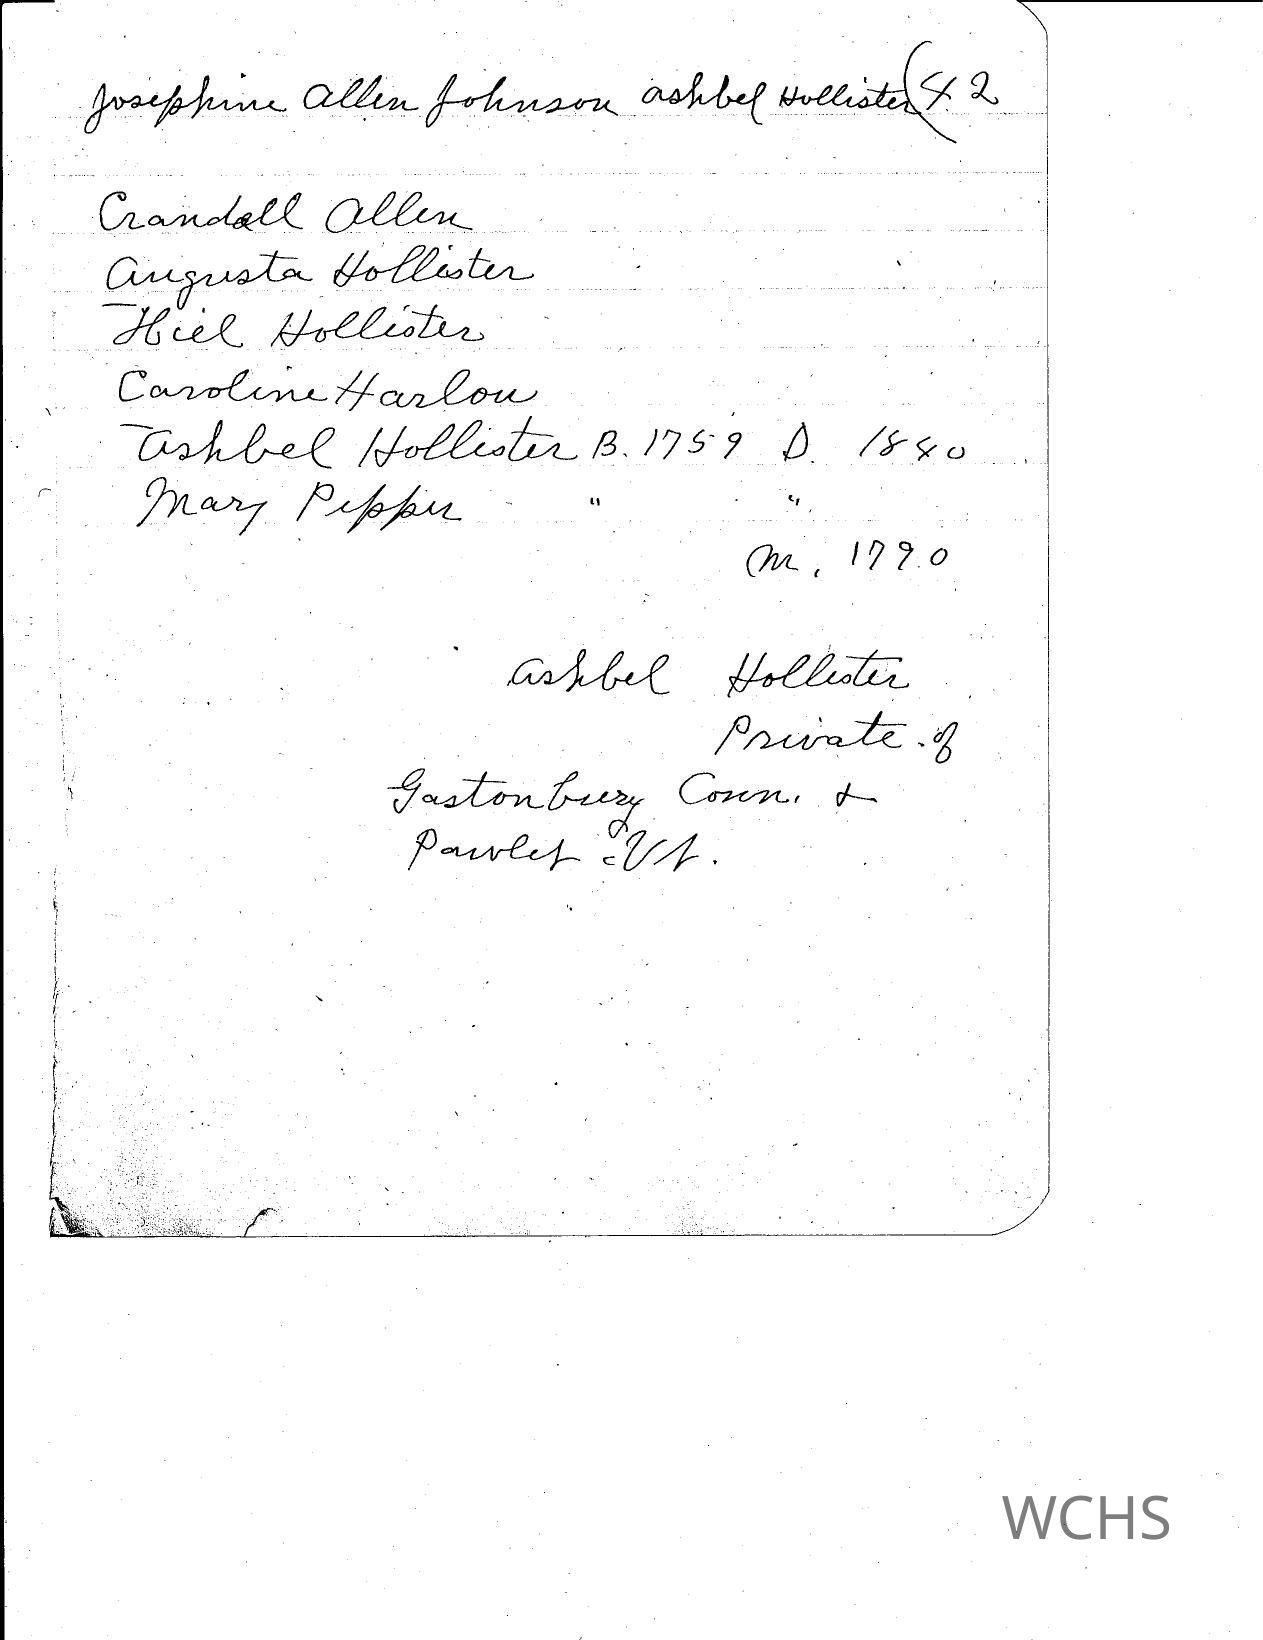 Josephine Allen Johnson Ashbel Hollister (42
Crandall Allen
Augusta Hollister
Hiel Hollister
Caroline Harlow
Ashbel Hollister B. 1759 D. 1840
Mary Pepper " "
m. 1790
Ashbel Hollister
Private of
Gastonbury Conn. &
Pawlet Vt.
WCHS